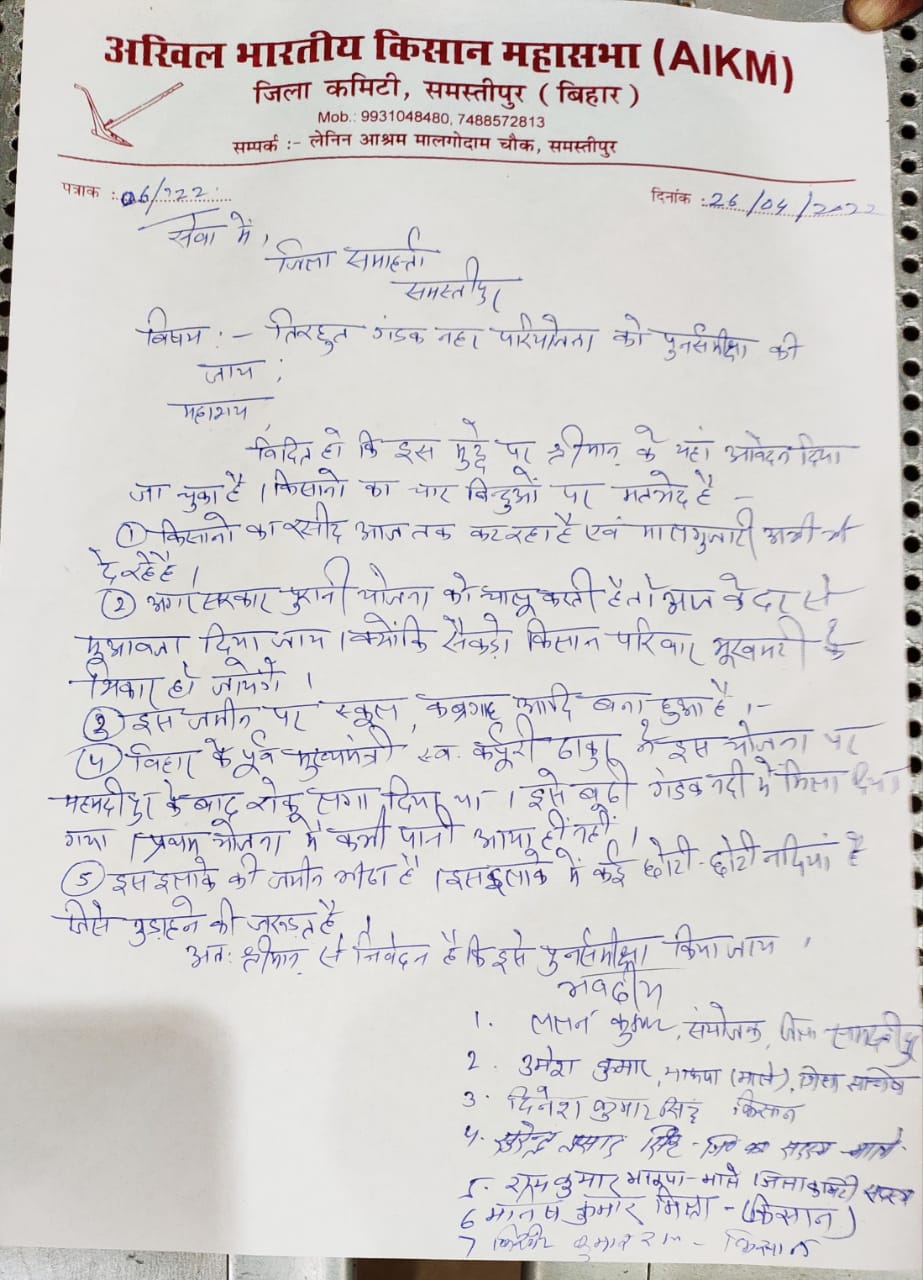 अखिल भारतीय किसान महासभा (AIKM)
जिला कमिटी, समस्तीपुर ( बिहार )
Mob.: 9931048480, 7488572813
सम्पर्क :- लेनिन आश्रम मालगोदाम चौक, समस्तीपुर
पत्राक : 06/222 दिनांक : 26/04/2022
सेवा में,
जिला समाहर्ता
समस्तीपुर
विषय :- तिरहुत गंडक नहर परियोजना को पुर्नसमीक्षा की
जाय ;
महाशय,
विदित हो कि इस मुद्दे पर श्रीमान् के यहां आवेदन दिया
जा चुका है । किसानो का चार बिन्दुओं पर मतभेद है -
① किसानो का रसीद आज तक कट रहा है एवं मालगुजारी अभी भी
दे रहे है ।
② अगर सरकार पुरानी योजना को चालू करती है तो आज के दर से
मुआवजा दिया जाय । क्योंकि सैकड़ो किसान परिवार भूखमरी के
शिकार हो जायेगें ।
③ इस जमीन पर स्कूल, कब्रगाह आदि बना हुआ है ।-
④ बिहार के पूर्व मुख्यमंत्री स्व. कर्पूरी ठाकुर ने इस योजना पर
के बाद रोक लगा दिया था । इसे बूढी गंडक नदी में मिला दिया
गया । प्रथम योजना में कभी पानी आया ही नहीं ।
⑤ इस इलाके की जमीन है । इस इलाके में कई छोटी-छोटी नदियां है
जिसे की जरूरत है ।
अतः श्रीमान् से निवेदन है कि इसे पुर्नसमीक्षा किया जाय ।
भवदीय
1. ललन कुमार, संयोजक, जिला समस्तीपुर
2. उमेश कुमार, भाकपा (माले), जिला सचिव
3. दिनेश कुमार सिंह किसान
4. सुरेन्द्र प्रसाद सिंह - सदस्य माले
5. राम कुमार भाकपा-माले जिला कमिटी सदस्य
6 मानष कुमार मिश्रा - (किसान)
7 कुमार राम - किसान